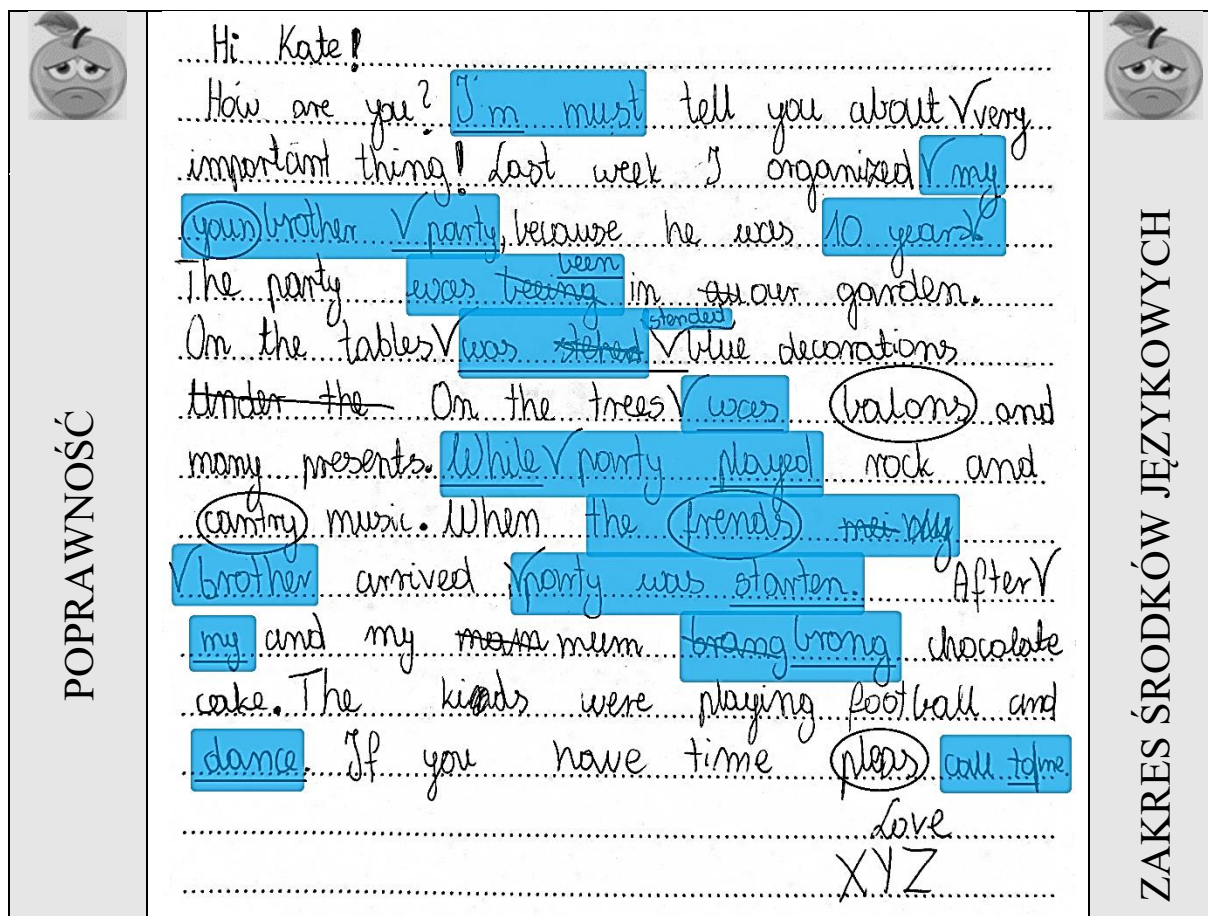 POPRAWNOŚĆ
Hi Kate!
How are you? I'm must tell you about very
important thing! Last week I organized my
youn brother party, because he was 10 years.
The party was beeing been in our garden.
On the tables was stended blue decorations
Under the On the trees was balons and
many presents. While party played rock and
cantry music. When the frends my
brother arrived party was starten. After
my and my mam mum brang brong chocolate
cake. The kids were playing football and
dance. If you have time pleas call to me.
Love
XYZ
ZAKRES ŚRODKÓW JĘZYKOWYCH